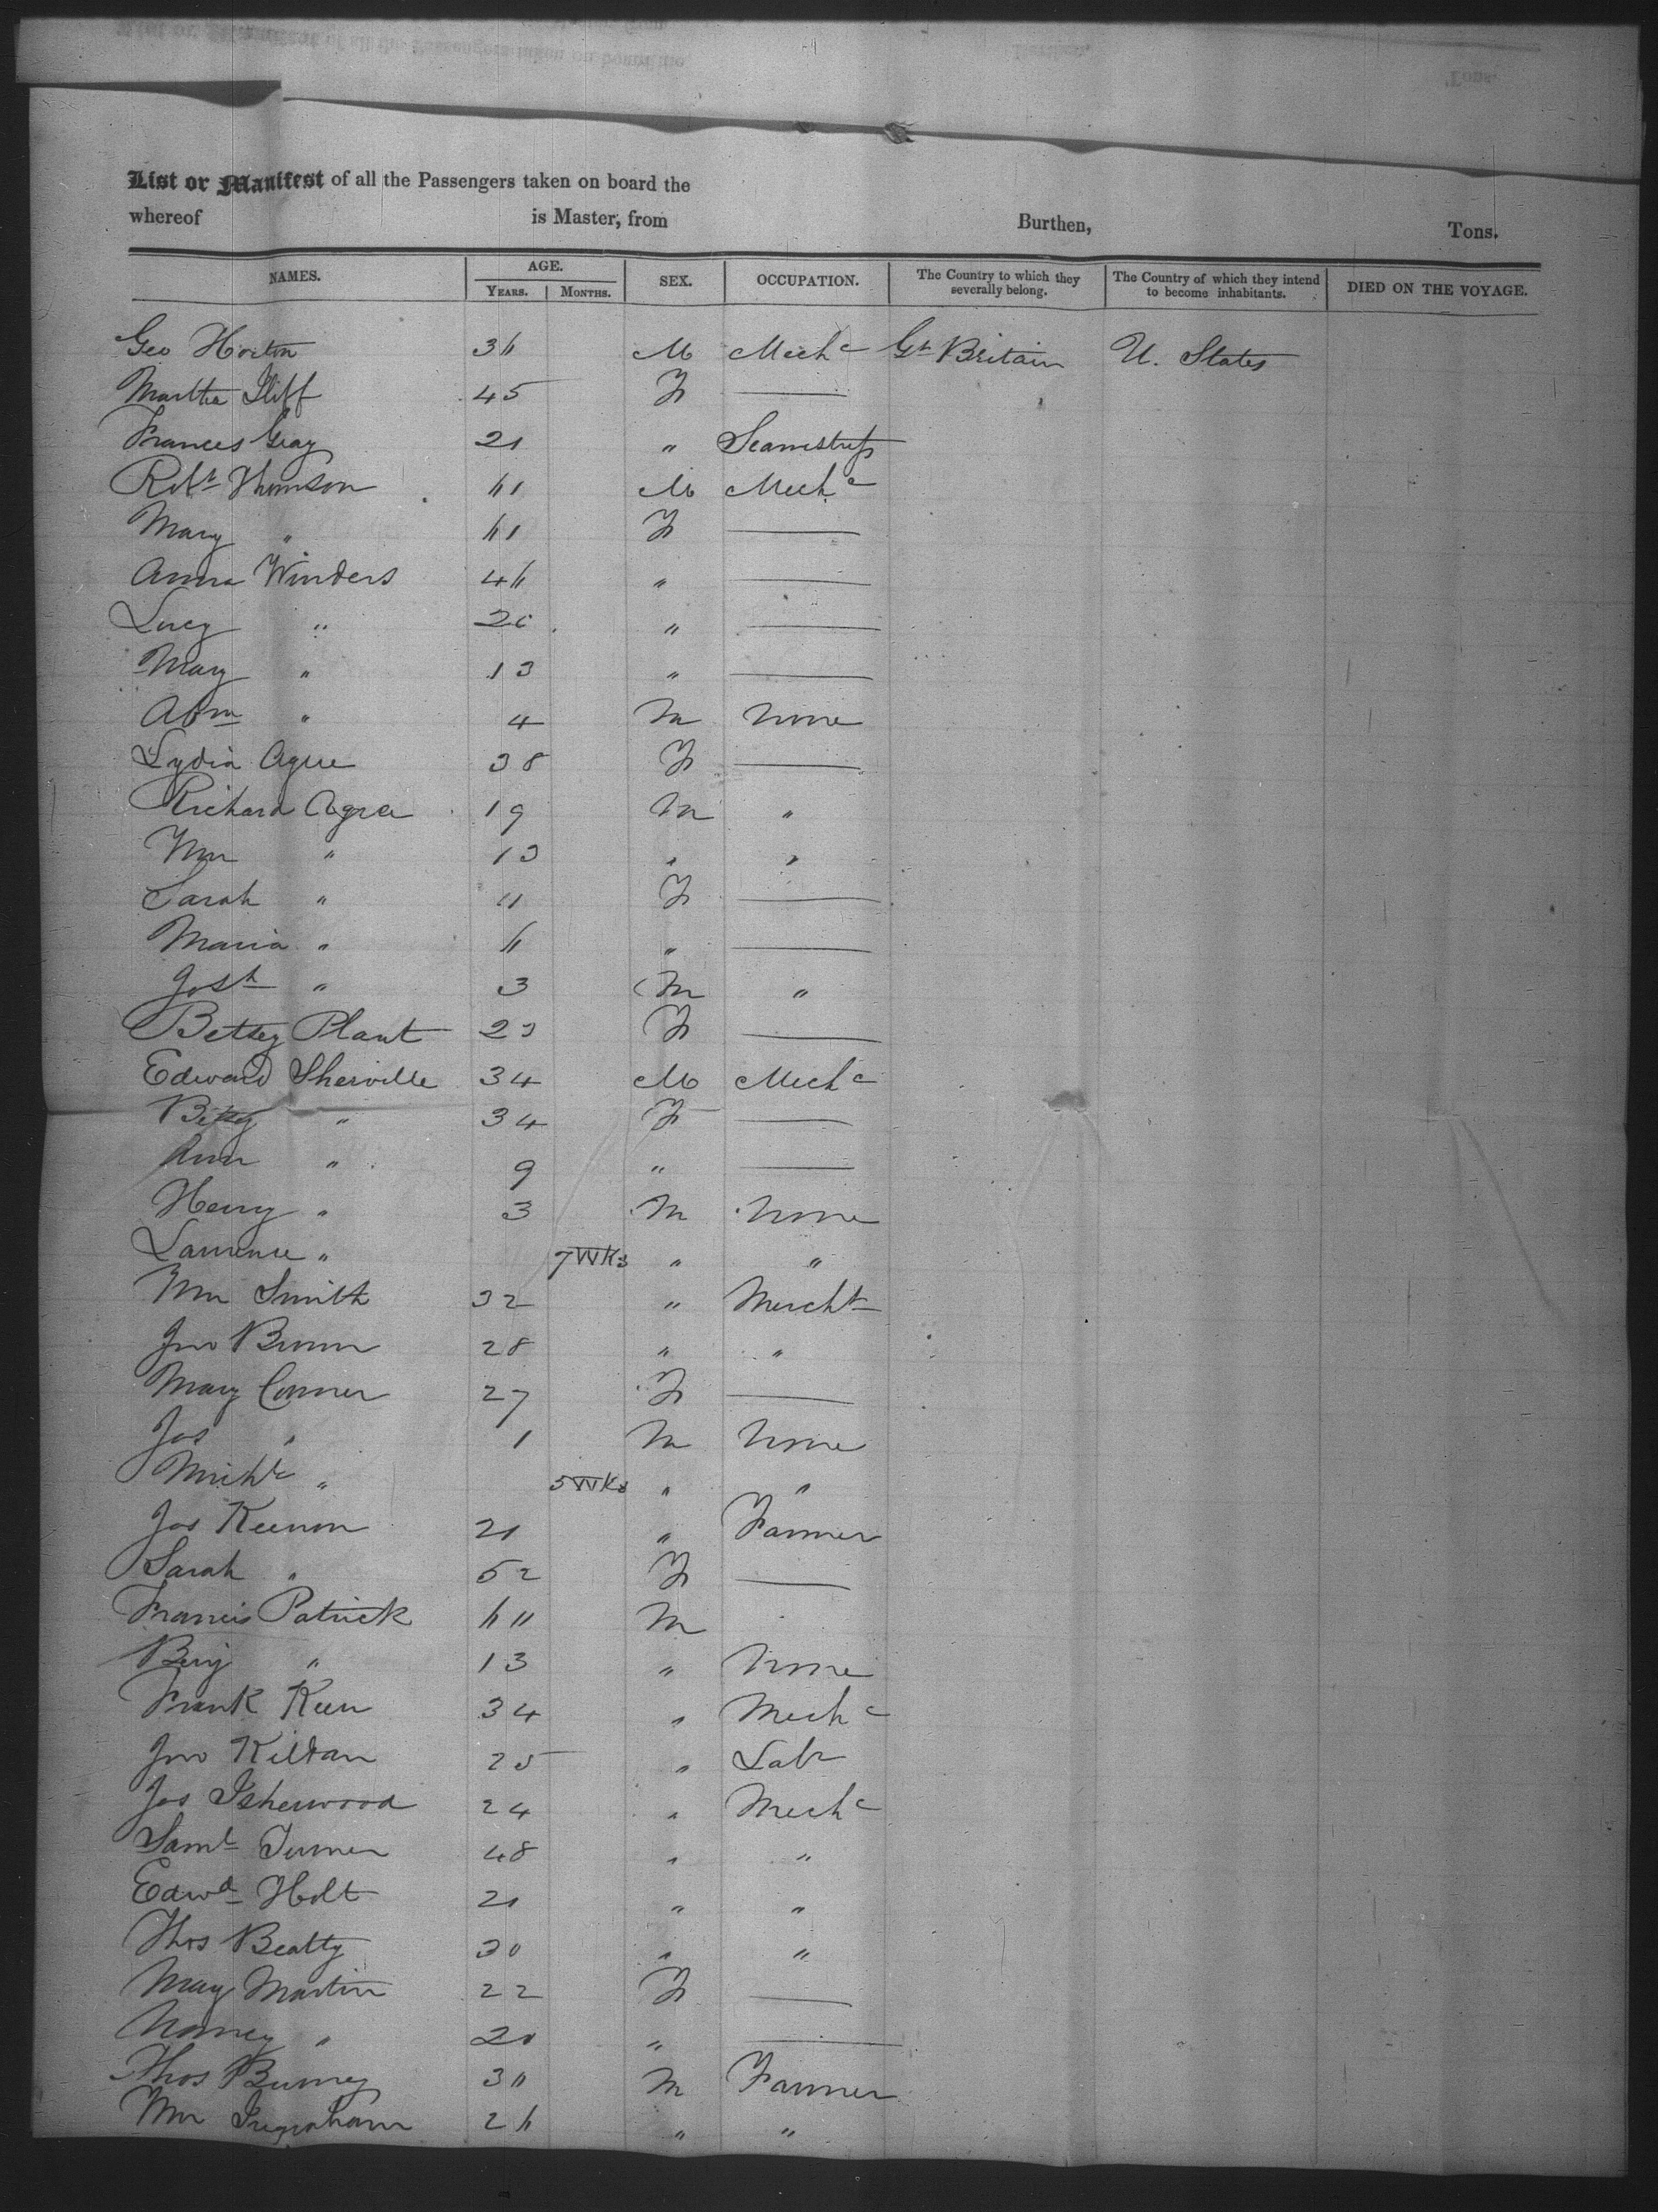 List or Manifest of all the Passengers taken on board the
whereof is Master, from Burthen, Tons.
NAMES. AGE. YEARS. MONTHS. SEX. OCCUPATION. The Country to which they severally belong. The Country of which they intend to become inhabitants. DIED ON THE VOYAGE.
Geo Horton 36 M Mechc Gt Britain U. States
Martha Iliff 45 F —
Frances Gray 21 " Seamstress
Robt Thomson 61 M Mechc
Mary " 61 F —
Anna Winders 46 " —
Lucy " 20 " —
Mary " 13 " —
Abm " 4 M None
Lydia Agre 38 F —
Richard Agre 19 M "
Wm " 13 " "
Sarah " 11 F —
Maria " 6 " —
Josh " 3 M "
Betsey Plant 23 F —
Edward Sherville 34 M Mechc
Betsy " 34 F —
Ann " 9 " —
Henry " 3 M None
Lawrence " 7 WKs " "
Wm Smith 32 " Mercht
Jno Brown 28 " "
Mary Conner 27 F —
Jos " 1 M None
Michl " 5 WKs " "
Jos Keenon 21 " Farmer
Sarah " 52 F —
Francis Patrick 60 M
Benj " 13 " None
Frank Keen 34 " Mechc
Jno Kildan 25 " Labr
Jos Isherwood 24 " Mechc
Saml Turner 48 " "
Edwd Holt 21 " "
Thos Beatty 30 " "
Mary Martin 22 F —
Nancy " 20 " —
Thos Burney 30 M Farmer
Wm Ingraham 26 " "